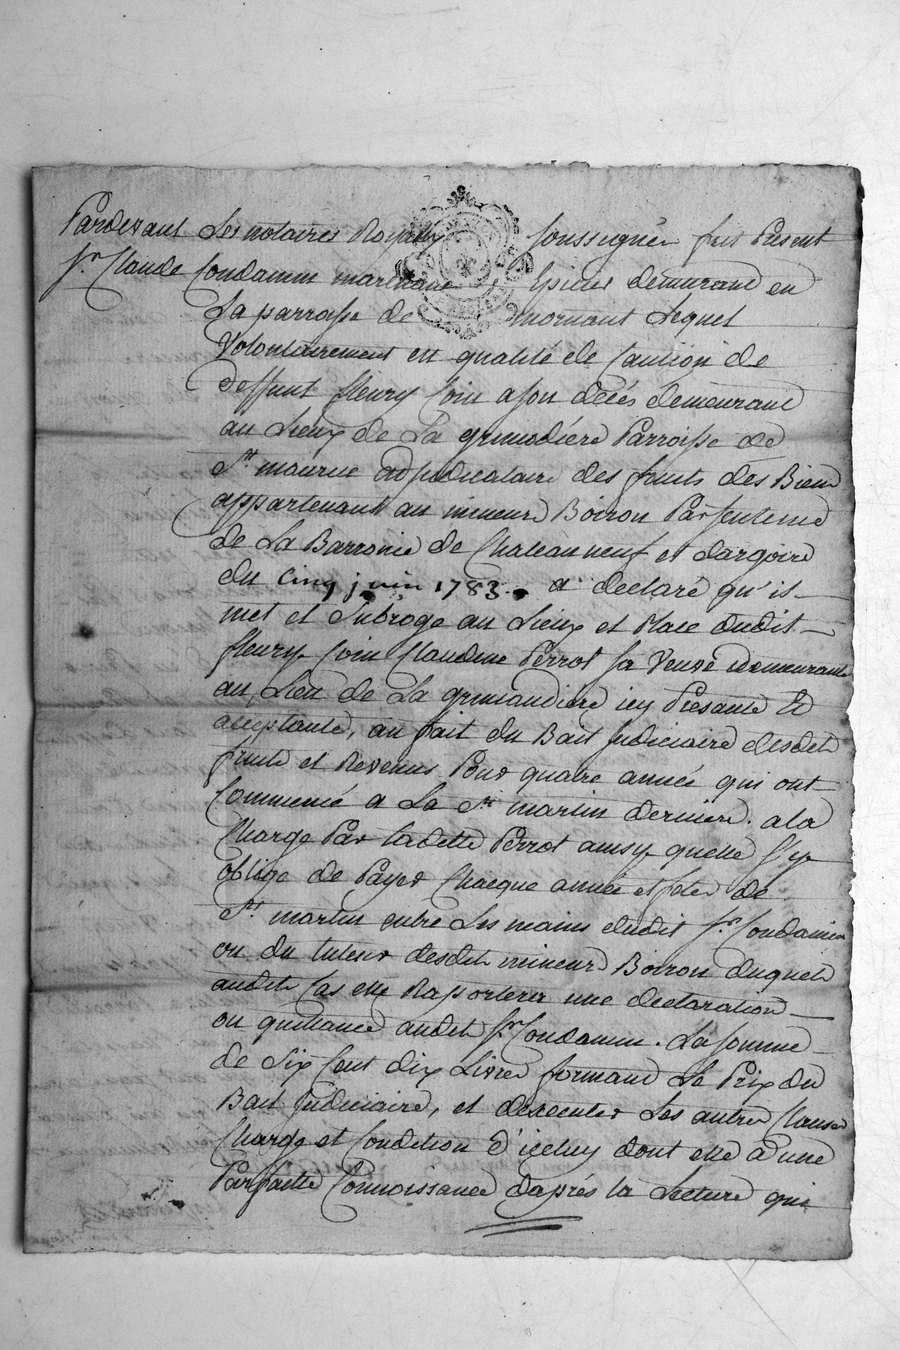 Pardevant Les notaires Royaux soussignés fut Présent
Sr. Claude Condamin marchand Epicier demeurant en
La parroisse de mornant Lequel
Volontairement en qualité de Caution de
deffunt fleury Coin a son décés demeurant
au Lieux de La grimodiére Parroisse de
St. maurice adjudicataire des fruits des Biens
appartenant au mineurs Boiron Par sentence
de La Barronie de Chateauneuf et dargoire
du cinq juin 1783. a declaré qu'il
met et Subroge au Lieux et Place dudit
fleury Coin Claudine Perrot sa Veuve demeurante
au Lieu de La grimaudiere icy Présante Et
acceptante, au fait du Bail Judiciaire desdits
fruits et Revenus Pour quatre année qui ont
Commencé a La St. martin derniere. a la
Charge Par Ladette Perrot ainsy quelle s'y
oblige de Payer Chacque année et fete de
St. martin entre Les mains dudit Sr. Condamin
ou du tuteur desdits mineurs Boiron duquel
audit Cas elle Raportera une declaration
ou quittance audit Sr. Condamin. La somme
de Six Cent dix Livres formant Le Prix du
Bail Judiciaire, et dexecuter Les autres Clauses
Charge et Condition d'iceluy dont elle a une
Parfaitte Connoissance daprés la Lecture qui